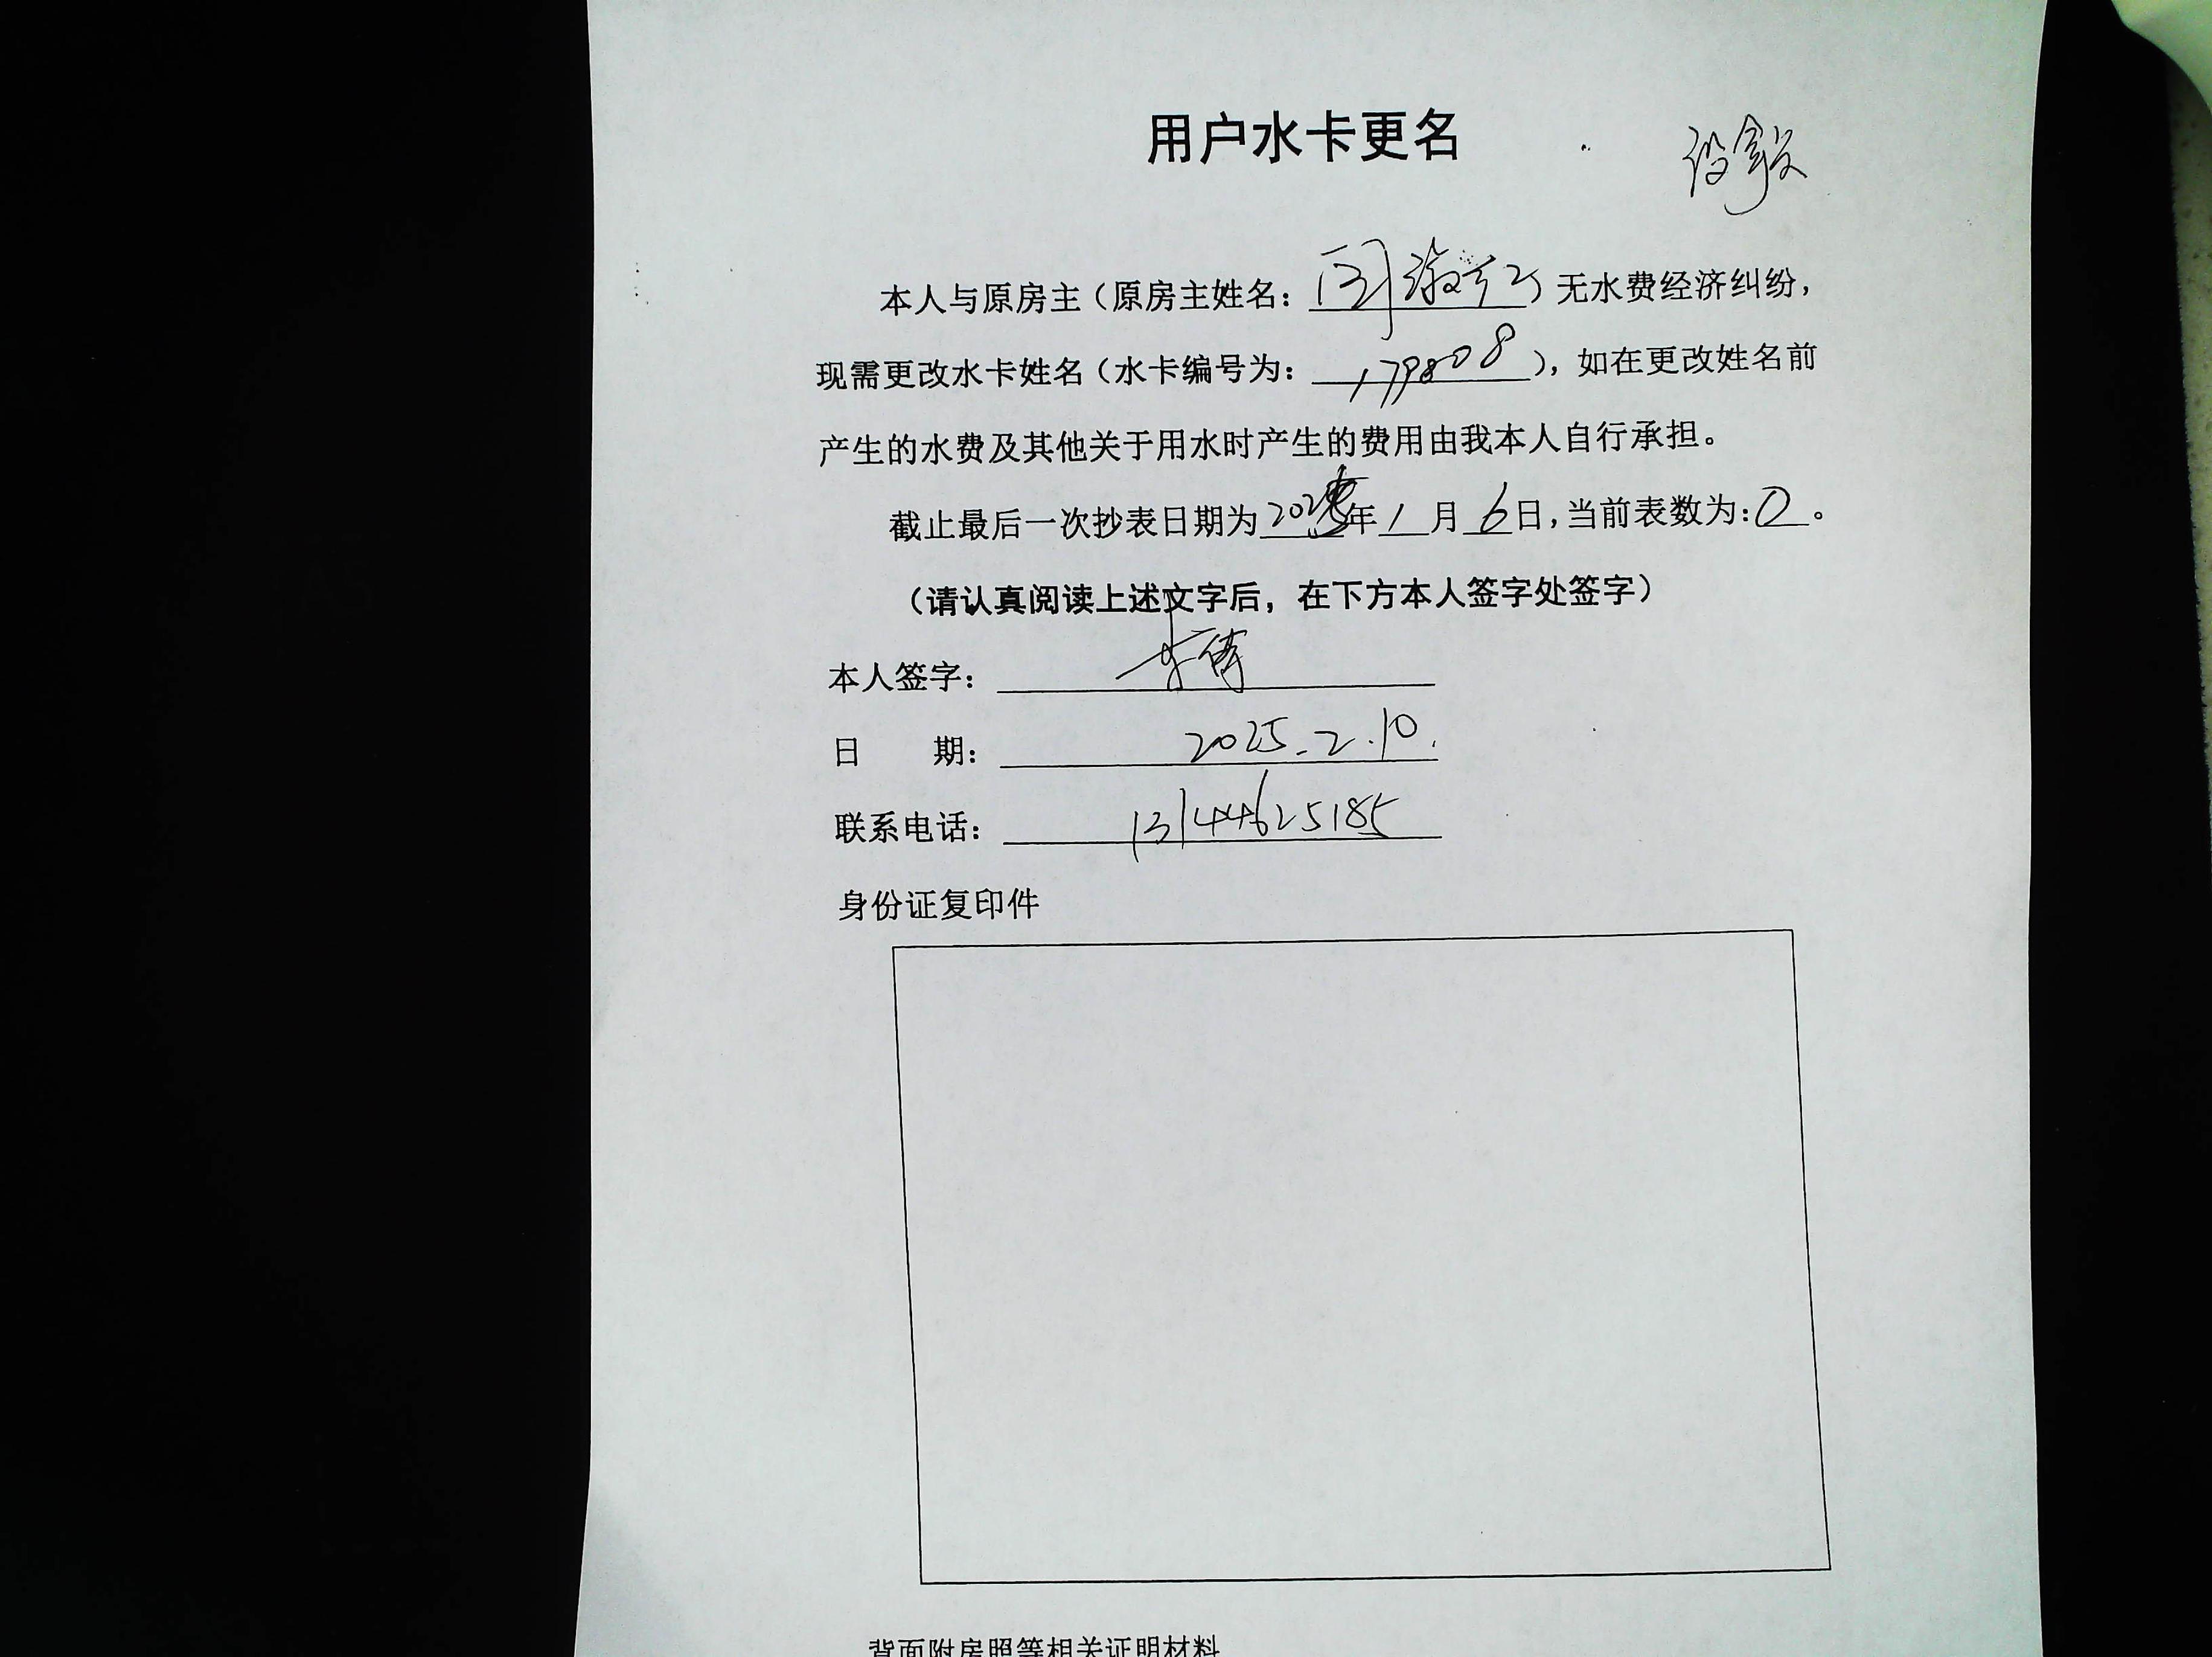 用户水卡更名
本人与原房主（原房主姓名：闫淑）无水费经济纠纷，
现需更改水卡姓名（水卡编号为：179808），如在更改姓名前
产生的水费及其他关于用水时产生的费用由我本人自行承担。
截止最后一次抄表日期为2025年1月6日，当前表数为：0。
（请认真阅读上述文字后，在下方本人签字处签字）
本人签字：李倩
日 期：2025.2.10.
联系电话：13144625185
身份证复印件
背面附房照等相关证明材料